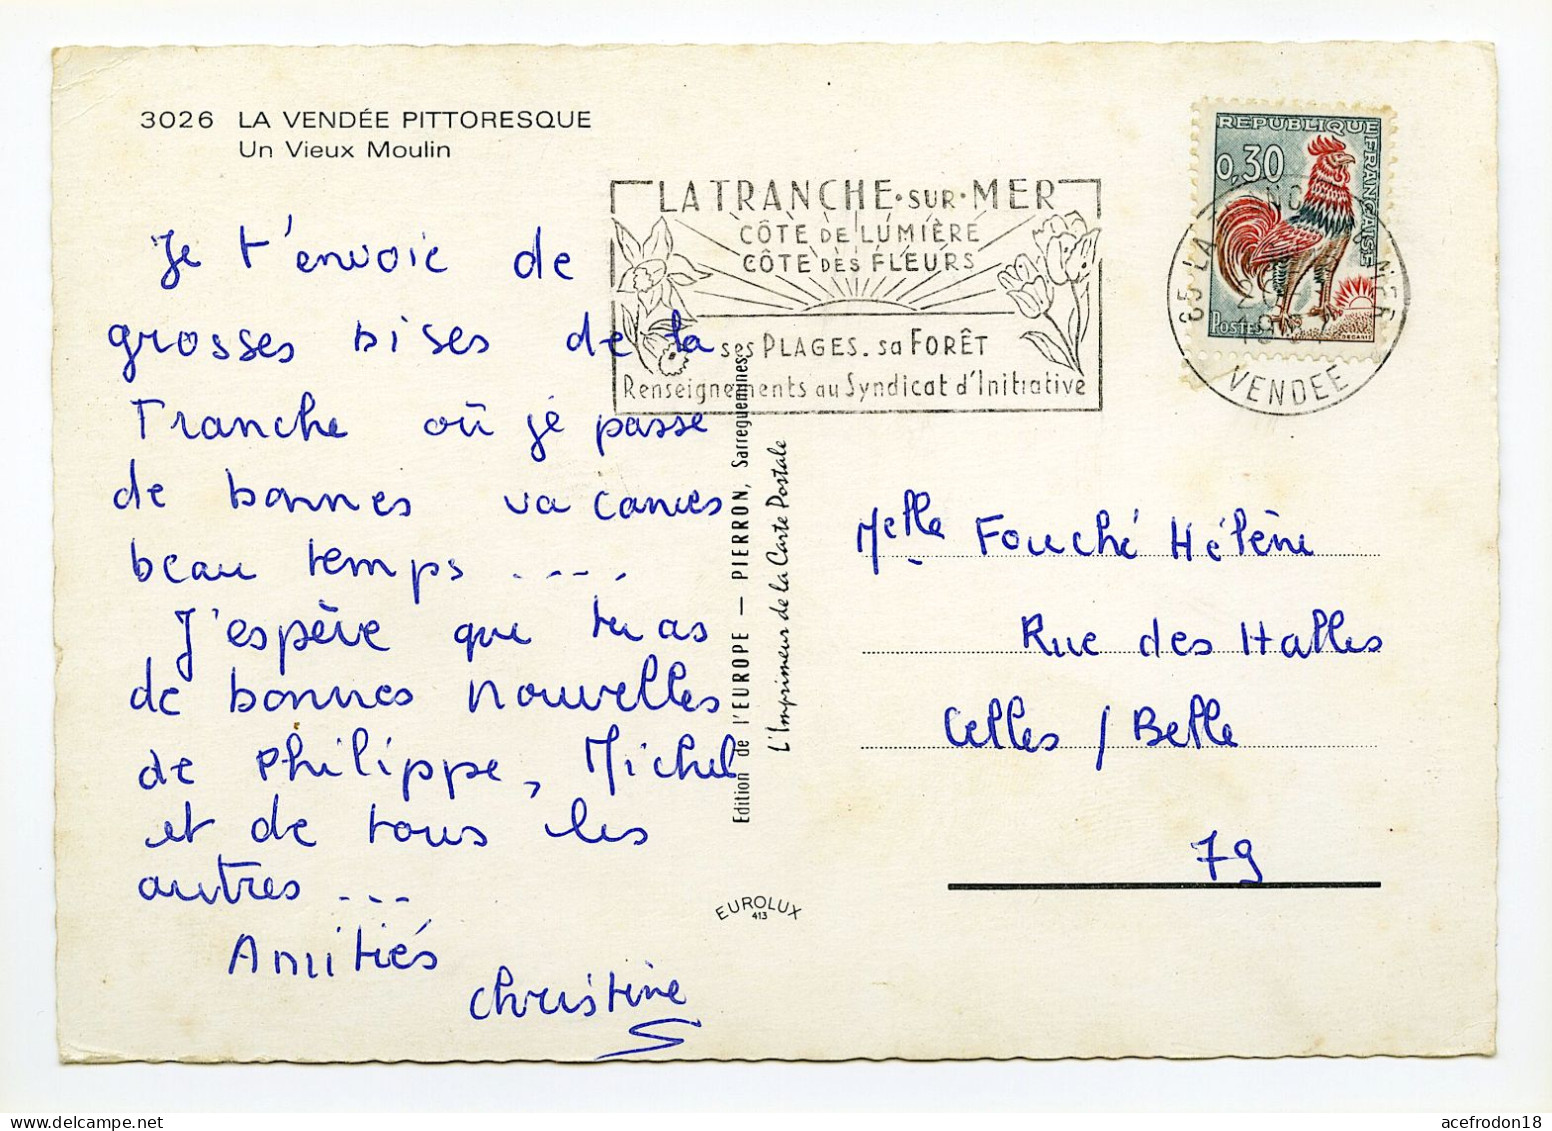 3026 LA VENDÉE PITTORESQUE
Un Vieux Moulin
Je t'envoie de
grosses bises de la
Tranche où je passe
de bonnes vacances
beau temps ....
J'espère que tu as
de bonnes nouvelles
de Philippe, Michel
et de tous les
autres ...
Amitiés
Christine
LA TRANCHE·SUR·MER
CÔTE DE LUMIÈRE
CÔTE DES FLEURS
ses PLAGES. sa FORÊT
Renseignements au Syndicat d'Initiative
REPUBLIQUE FRANÇAISE
0,30
POSTES
85 LA
MER
VENDEE
Edition de l'EUROPE — PIERRON, Sarreguemines
L'Imprimeur de la Carte Postale
EUROLUX
413
Melle Fouché Hélène
Rue des Halles
Celles / Belle
79
acefrodon18